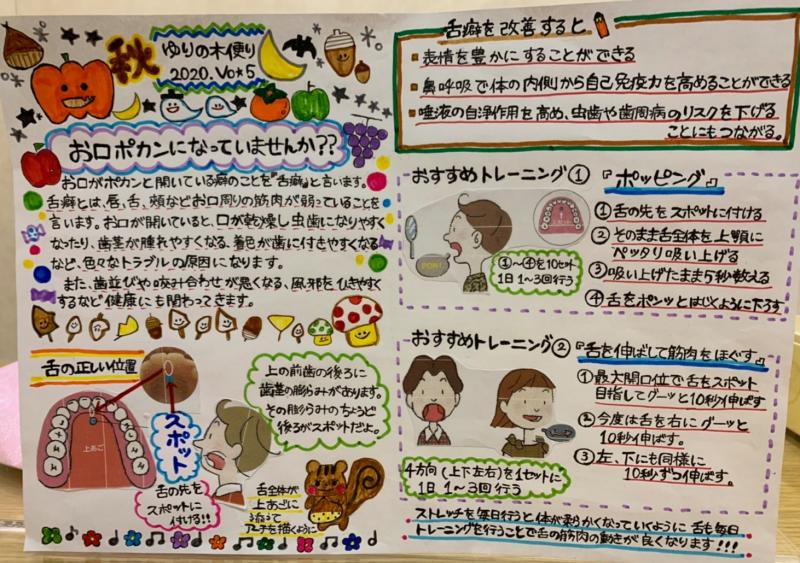 秋
ゆりの木便り
2020. Vo★5
お口ポカンになっていませんか??
お口がポカンと開いている癖のことを"舌癖"と言います。
舌癖とは、唇、舌、頬などお口周りの筋肉が弱っていることを
言います。お口が開いていると、口が乾燥し虫歯になりやすく
なったり、歯茎が腫れやすくなる、着色が歯に付きやすくなる
など、色々なトラブルの原因になります。
また、歯並びや咬み合わせが悪くなる、風邪をひきやすく
するなど健康にも関わってきます。
舌の正しい位置
上あご
スポット
舌の先を
スポットに
付ける!!
上の前歯の後ろに
歯茎の膨らみがあります。
その膨らみのちょうど
後ろがスポットだよ。
舌全体が
上あごに
アーチを描くように
舌癖を改善すると
表情を豊かにすることができる
鼻呼吸で体の内側から自己免疫力を高めることができる
唾液の自浄作用を高め、虫歯や歯周病のリスクを下げる
ことにもつながる。
おすすめトレーニング① 『ポッピング』
①舌の先をスポットに付ける
②そのまま舌全体を上顎に
ペックリ吸い上げる
③吸い上げたまま5秒数える
④舌をポンッとはじくように下ろす
PON!
①~④を10セット
1日1~3回行う
おすすめトレーニング② 『舌を伸ばして筋肉をほぐす』
①最大開口位で舌をスポット
目指してグーッと10秒伸ばす
②今度は舌を右にグーッと
10秒伸ばす。
③左、下にも同様に
10秒ずつ伸ばす。
4方向(上下左右)を1セットに
1日1~3回行う
ストレッチを毎日行うと体が柔らかくなっていくように舌も毎日
トレーニングを行うことで舌の筋肉の動きが良くなります!!!